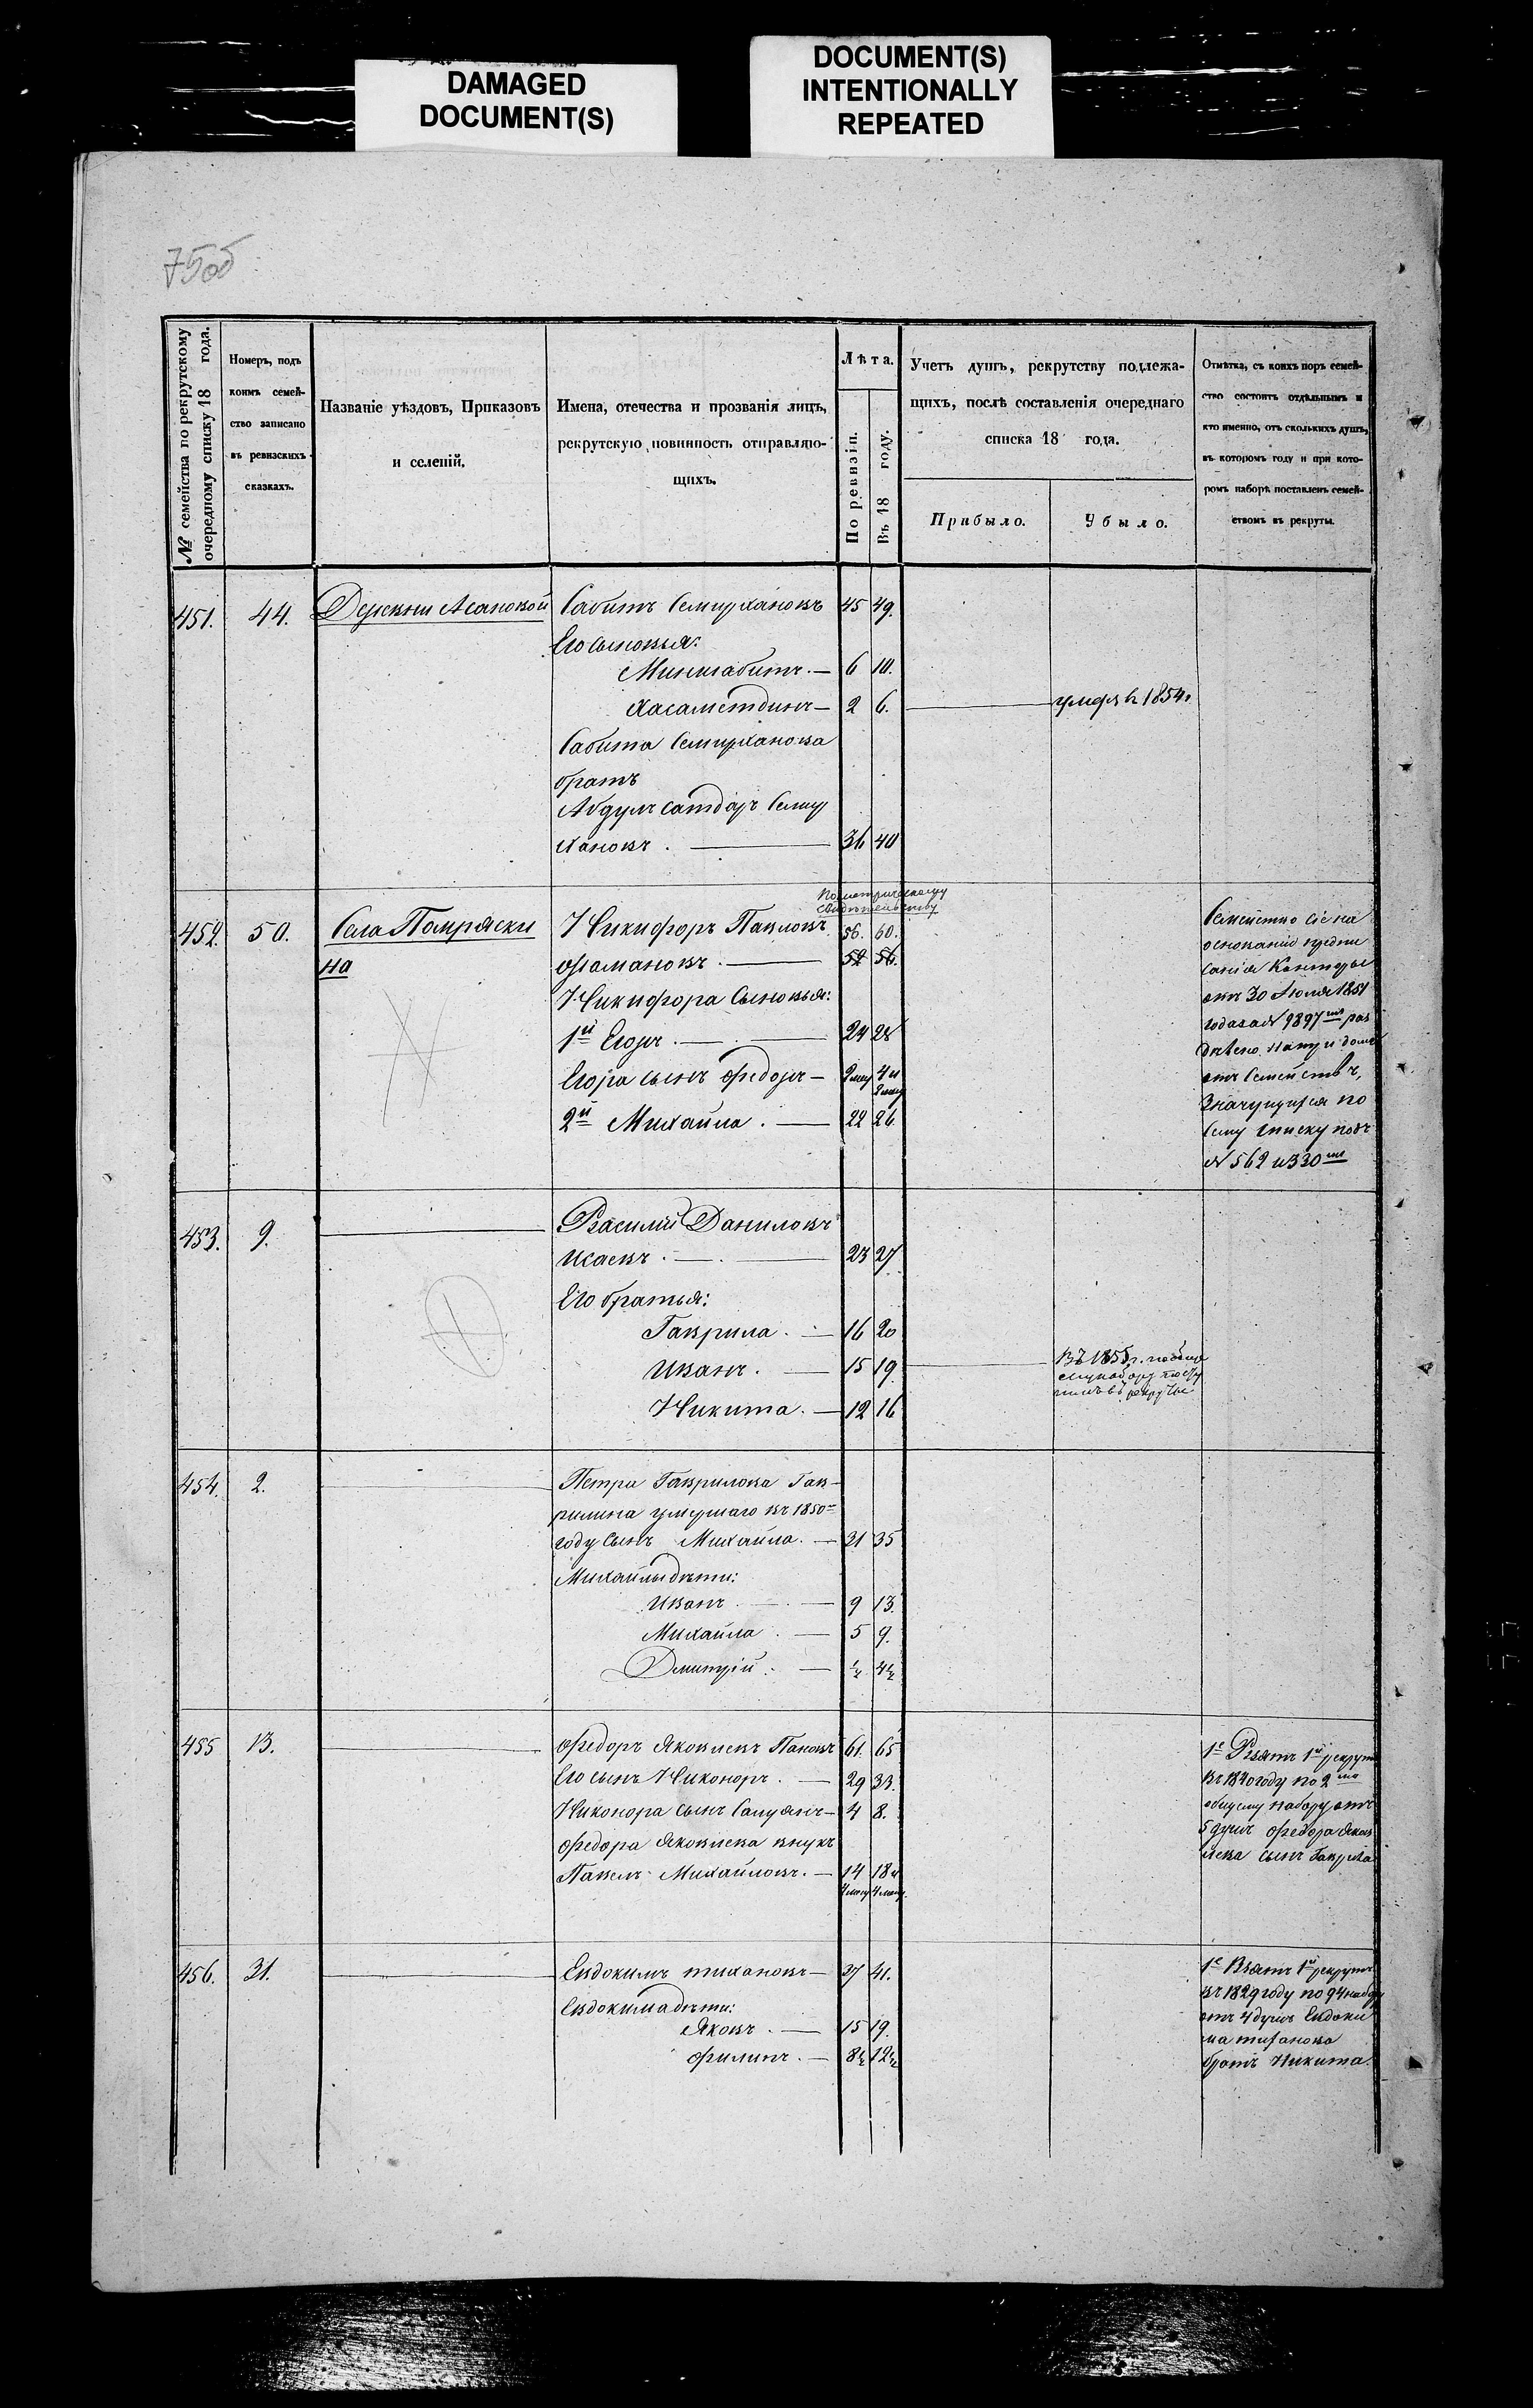 DAMAGED
DOCUMENT(S)
DOCUMENT(S)
INTENTIONALLY
REPEATED
75об
№ семейства по рекрутскому
очередному списку 18 года.
Номеръ, подъ
коимъ семей-
ство записано
въ ревизскихъ
сказкахъ.
Названіе уѣздовъ, Приказовъ
и селеній.
Имена, отечества и прозванія лицъ,
рекрутскую повинность отправляю-
щихъ.
Лѣта.
По ревизіи.
Въ 18 году.
Учетъ душъ, рекрутству подлежа-
щихъ, послѣ составленія очереднаго
списка 18 года.
Прибыло.
Убыло.
Отмѣтка, съ коихъ поръ семей-
ство состоитъ отдѣльнымъ и
кто именно, отъ сколькихъ душъ,
въ которомъ году и при кото-
ромъ наборѣ поставленъ семей-
ствомъ въ рекруты.
451. 44. Деревни Асановой Сабитъ Семирхановъ 45 49.
Его сыновья:
Минигабитъ. — 6 10.
Хасаметдинъ — 2 6. — умеръ 1854.
Сабита Семирханова
братъ
Абдулъ Сатдаръ Семир
хановъ. — 36 40
По метрическому
свидѣтельству
452. 50. Села Помряски Никифоръ Павловъ 56. 60.
на
Фатамановъ. — 52 56.
Никифора Сыновья:
1й Егоръ. — 24 28
Егора сынъ Федоръ — 2 мц 4 и
2 мц
2й Михайла. — 22 26.
Семейство сіе на
основаніи предпи
санія Конторы
отъ 30 Іюля 1851
года за № 9897мъ раз
дѣлено
отъ Семействъ,
Значущихся по
сему списку подъ
№ 562 и 330мъ
453. 9. — Василій Даниловъ
Исаевъ. — 23 27.
Его братья:
Гаврила. — 16 20
Иванъ. — 15 19. —
Никита. — 12 16
Въ 1855 г.
набору посту
пилъ въ рекруты
454. 2. — Петра Гаврилова Гав-
рилина умершаго въ 1850м
году Сынъ Михайла. — 31 35
Михайлы дѣти:
Иванъ. — 9 13.
Михайла. — 5 9.
Дмитрій. — ½ 4½
455 13. — Федоръ Яковлевъ Пановъ 61. 65
Его сынъ Никоноръ. — 29 33.
Никонора сынъ — 4 8.
Федора Яковлева внукъ
Павелъ Михайловъ. — 14 18 и
4 мц 4 мц.
1е Взятъ 1й рекрутъ
въ 1840 году по 2му
общему набору отъ
5 душъ Федора Яков
лева сынъ Гаврила
456. 31. — Евдокимъ Тихановъ — 37 41.
Евдокима дѣти:
Яковъ. — 15 19.
Филипъ. — 8½ 12½
1е Взятъ 1й рекрутъ
въ 1829 году по 94 набору
отъ 4 душъ Евдоки
ма Тиханова
братъ Никита.